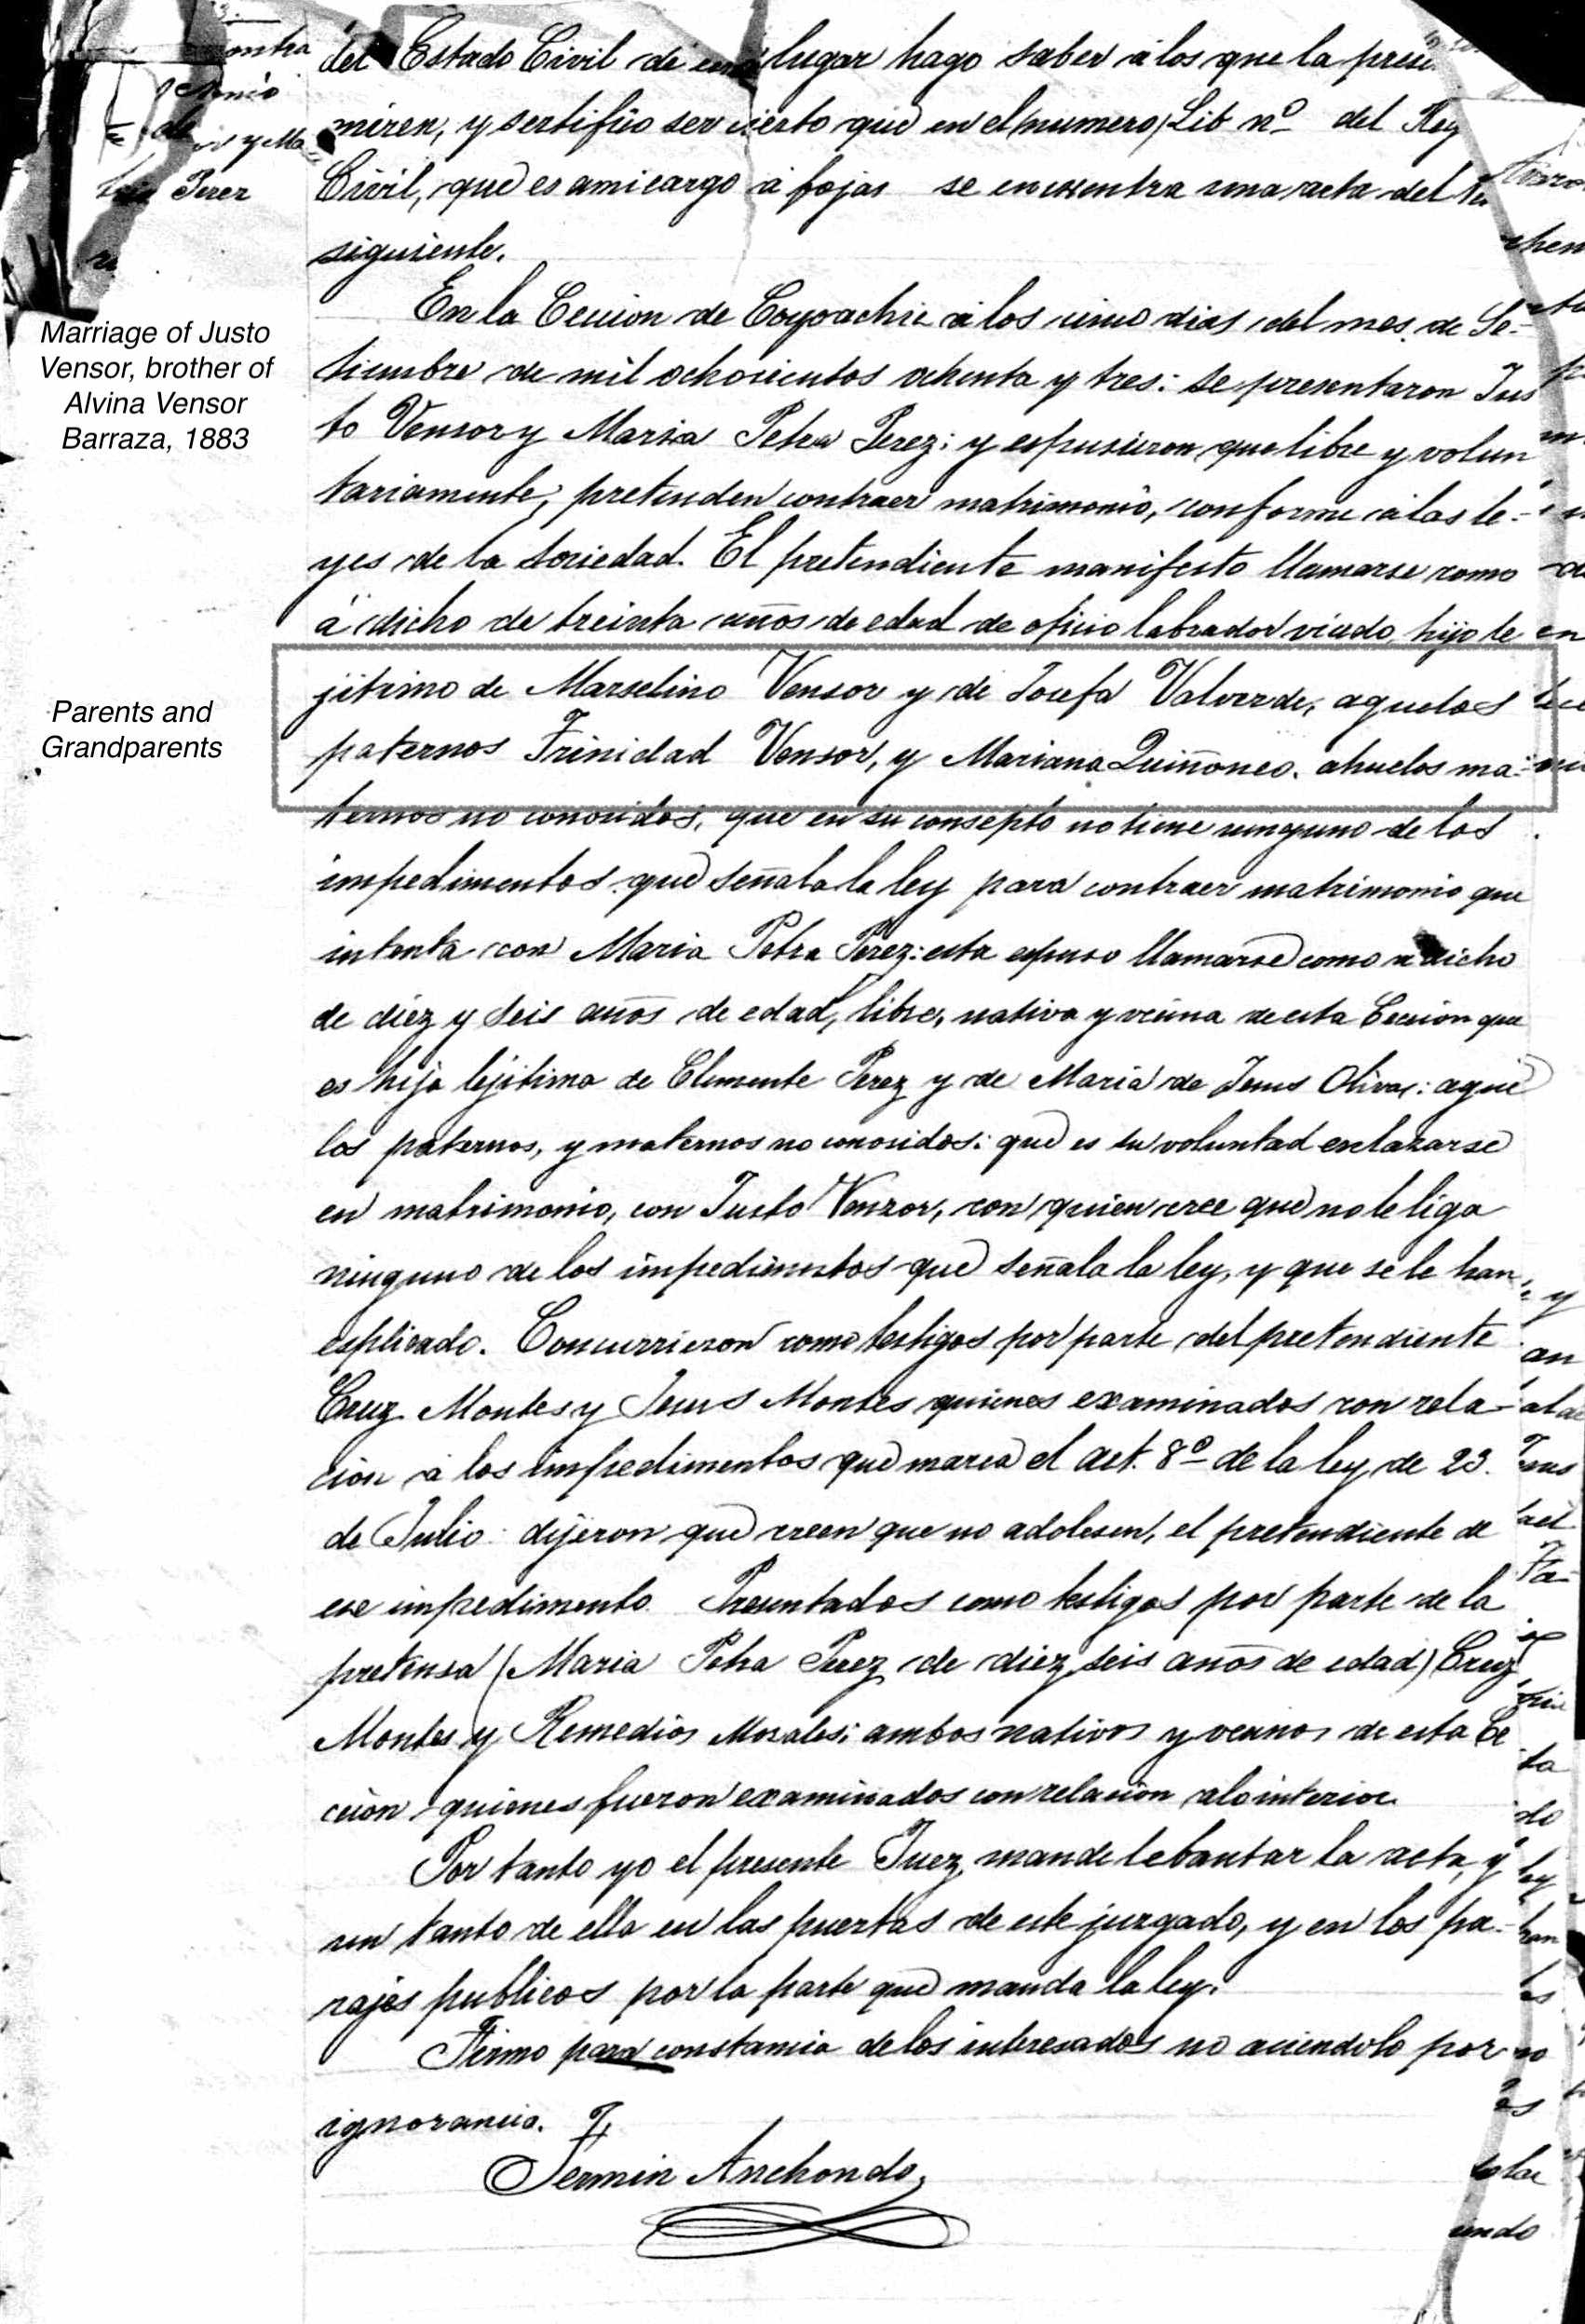 contra
Perez
Marriage of Justo
Vensor, brother of
Alvina Vensor
Barraza, 1883
Parents and
Grandparents
del Estado Civil de lugar hago saber á los que la
miren, y sertifico ser cierto que en el numero, Lib nº del Reg
Civil, que es amicargo á fojas se encuentra una acta del
siguiente.
En la Ceccion de Coyoachic á los cinco dias del mes de Se-
tiembre de mil ochosientos ochenta y tres: se presentaron Jus
to Vensor y Maria Petra Perez: y espusieron que libre y volun
tariamente, pretenden contraer matrimonio, conforme á las le-
yes de la sociedad. El pretendiente manifesto llamarse como
á dicho de treinta años de edad de oficio labrador viudo, hijo le
jitimo de Marselino Vensor y de Josefa Valverde, aguelos
paternos Trinidad Vensor, y Mariana Quiñones. ahuelos ma-
ternos no conosidos, que en su consepto no tiene ninguno de los
impedimentos que señala la ley para contraer matrimonio que
intenta con Maria Petra Perez: esta espuso llamarse como a dicho
de diez y seis años de edad, libre, nativa y vecina de esta Ceccion que
es hija lejitima de Clemente Perez y de Maria de Jesus Olivas: ague
los paternos, y maternos no conosidos: que es su voluntad enlazarse
en matrimonio, con Justo Venzor, con quien cree que no le liga
ninguno de los impedimentos que señala la ley, y que se le han
esplicado. Concurrieron como testigos por parte del pretendiente
Cruz Montes y Jesus Montes quienes examinados con rela-
cion á los impedimentos que marca el art. 8º de la ley de 23.
de Julio dijeron que creen que no adolesen, el pretendiente de
ese impedimento. Presentados como testigos por parte de la
pretensa (Maria Petra Perez de diez seis años de edad) Cruz
Montes y Remedios Morales: ambos nativos y vecinos de esta Ce
ccion quienes fueron examinados con relacion alo interior.
Por tanto yo el presente Juez, mande lebantar la acta, y
un tanto de ella en las puertas de este juzgado, y en los pa-
rajes publicos por la parte que manda la ley.
Firmo para constancia de los interesados no aciendolo por
ignorancia.
Fermin Anchondo